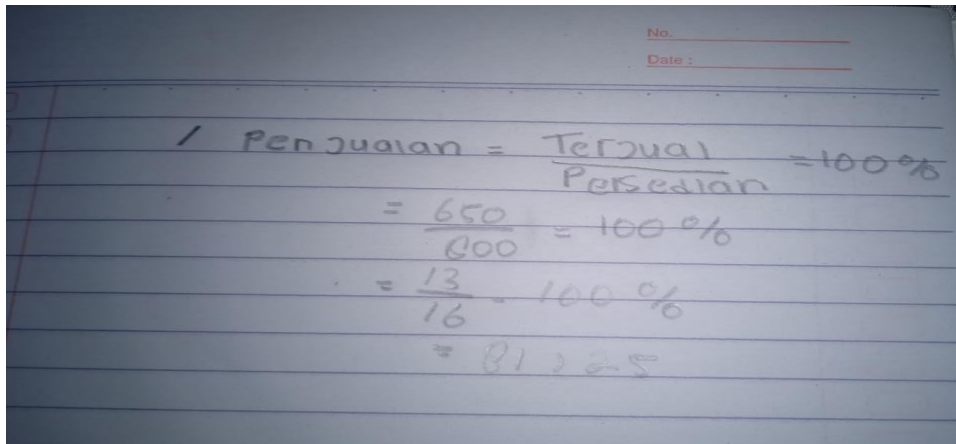 No.
Date :
1 Penjualan = Terjual / Persedian = 100 %
= 650 / 800 = 100 %
= 13 / 16 - 100 %
= 81,25